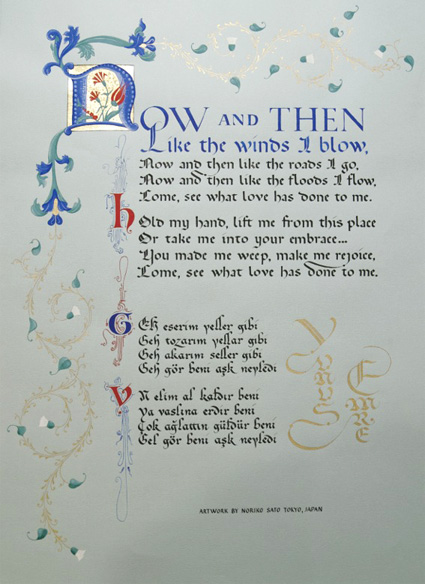 NOW AND THEN
Like the winds I blow,
Now and then like the roads I go,
Now and then like the floods I flow,
Come, see what love has done to me.
hOld my hand, lift me from this place
Or take me into your embrace...
You made me weep, make me rejoice,
Come, see what love has done to me.
GEh eserim yeller gibi
Geh tozarım yollar gibi
Geh akarım seller gibi
Gel gör beni aşk neyledi
YA elim al kaldır beni
Ya vaslına erdir beni
Çok ağlattın güldür beni
Gel gör beni aşk neyledi
Yunus
EMRE
ARTWORK BY NORIKO SATO TOKYO, JAPAN